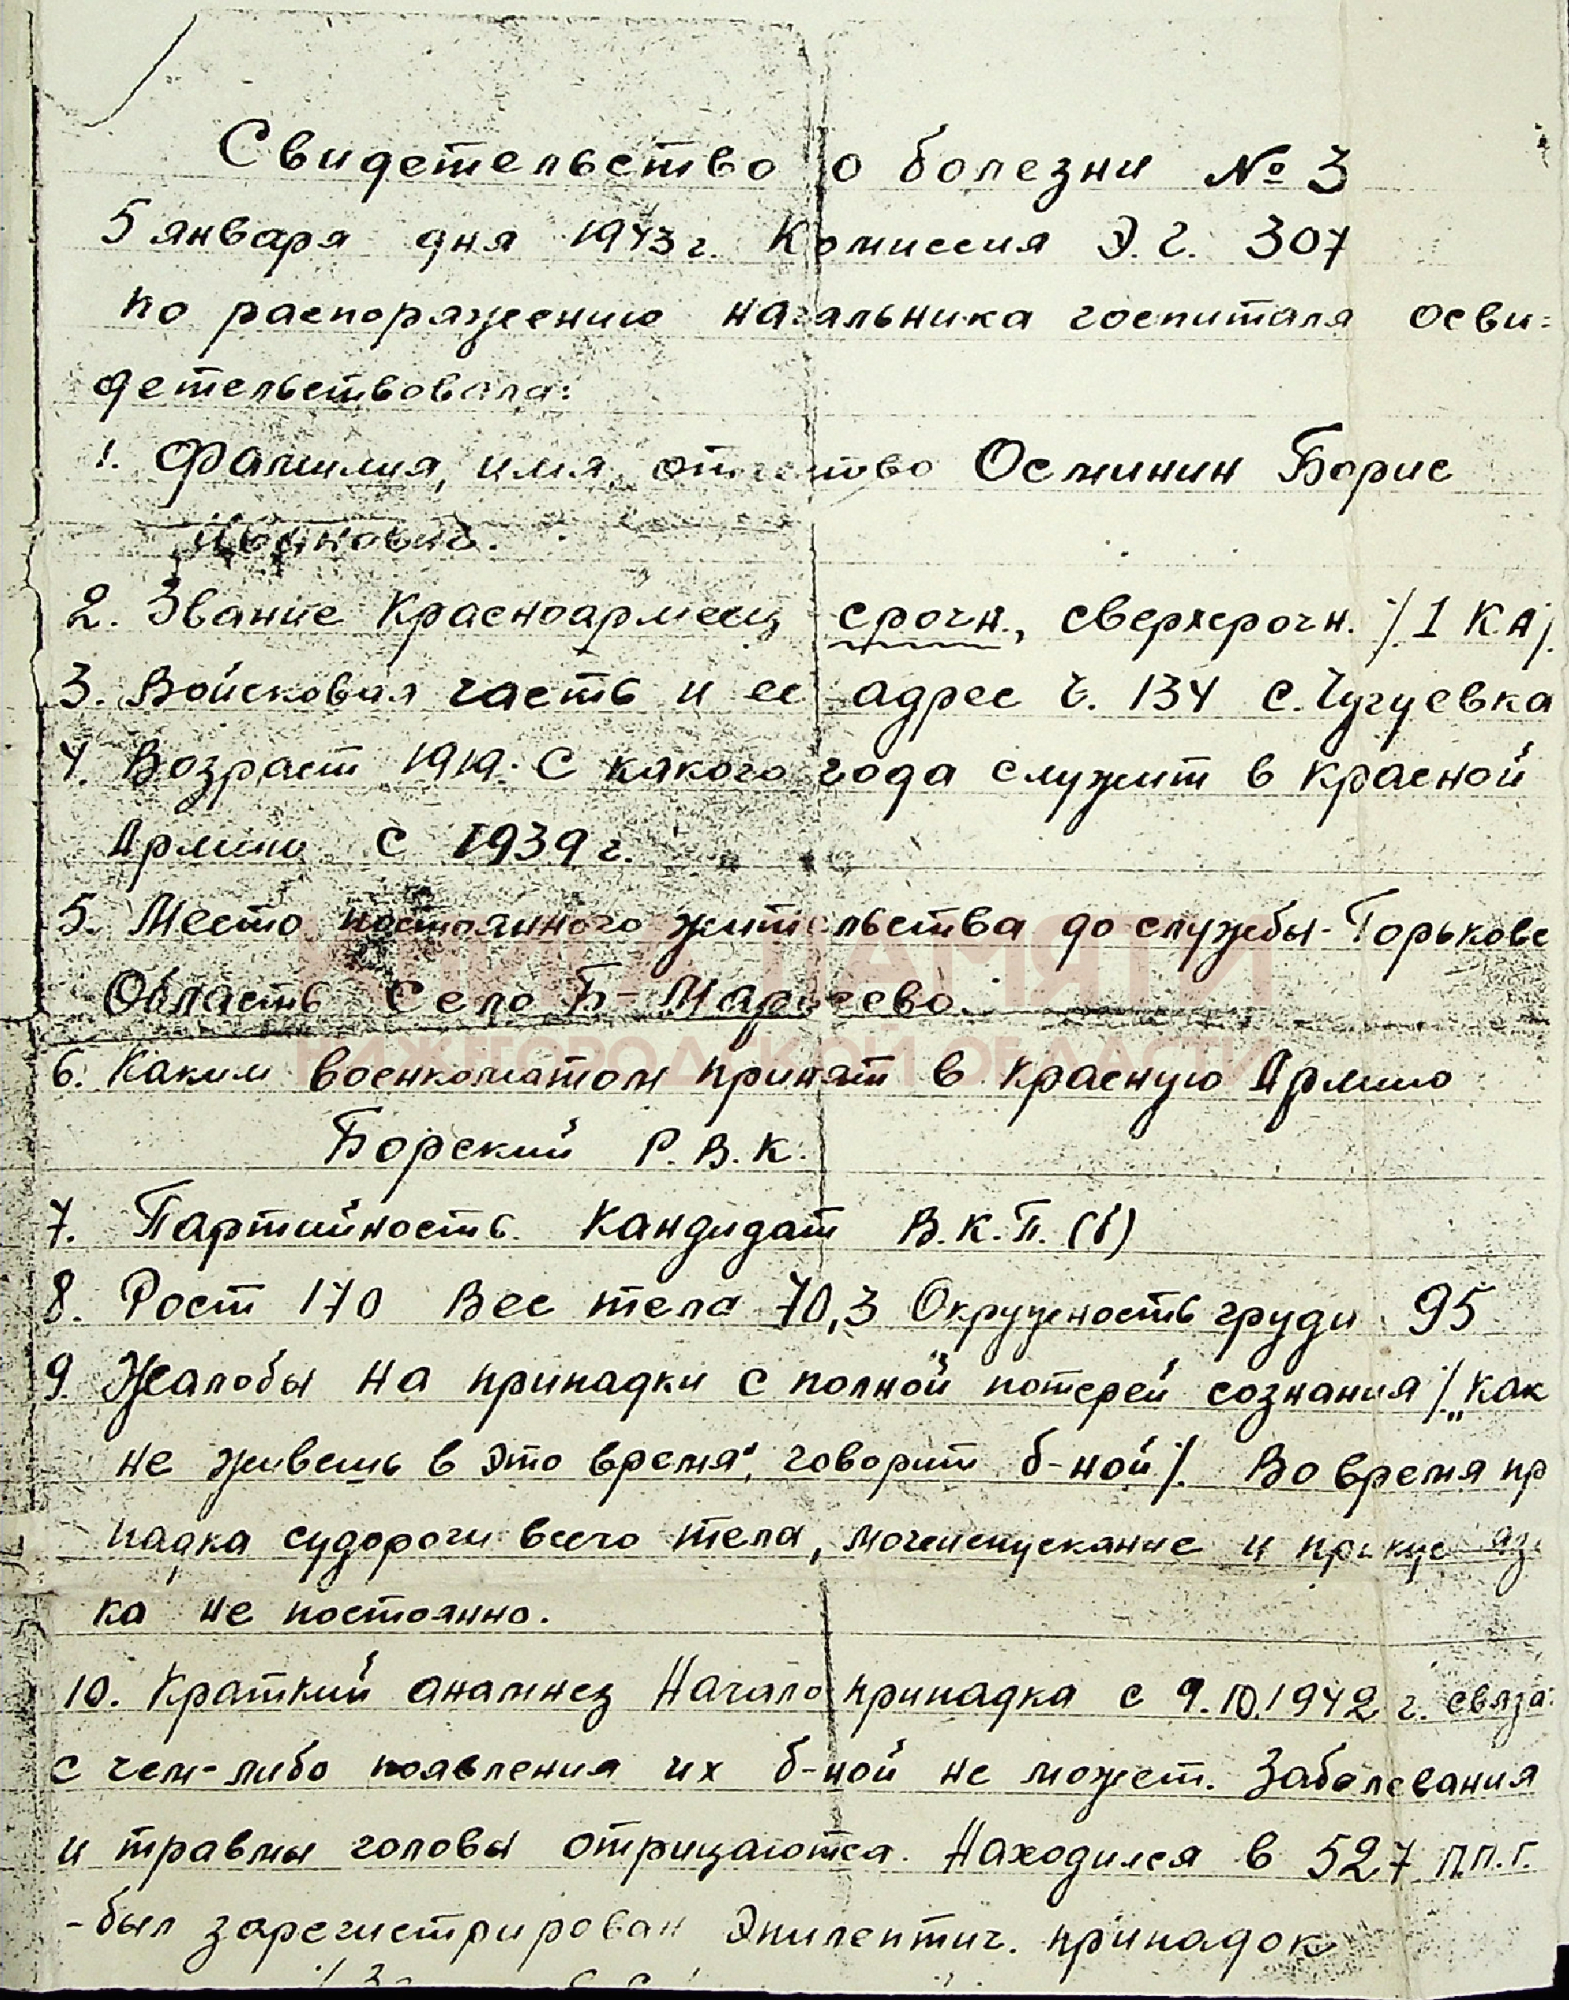 Свидетельство о болезни № 3
5 января дня 1943 г. Комиссия Э.Г. 307
по распоряжению начальника госпиталя осви=
детельствовала:
1. Фамилия, имя, отчество Осминин Борис
Иванович.
2. Звание Красноармеец срочн., сверхсрочн. /1 КА/.
3. Войсковая часть и ее адрес Ч. 134 с. Чугуевка
4. Возраст 1919. С какого года служит в Красной
Армию с 1939 г.
5. Место постоянного жительства до службы - Горьковс
Область Село Б-
6. Каким военкоматом принят в Красную Армию
Борский Р.В.К.
7. Партийность. Кандидат В.К.П.(б)
8. Рост 170 Вес тела 70,3 Окружность груди 95
9. Жалобы на припадки с полной потерей сознания /„как
не живешь в это время", говорит б-ной/. Во время пр
падка судороги всего тела, мочеиспускание и прикус язы
ка не постоянно.
10. Краткий анамнез Начало припадка с 9.10.1942 г. связа:
с чем-либо появления их б-ной не может. Заболевания
и травмы головы отрицаются. Находился в 527 п.п.г.
- был зарегистрирован Эпилептич. припадок
КНИГА ПАМЯТИ
НИЖЕГОРОДСКОЙ ОБЛАСТИ